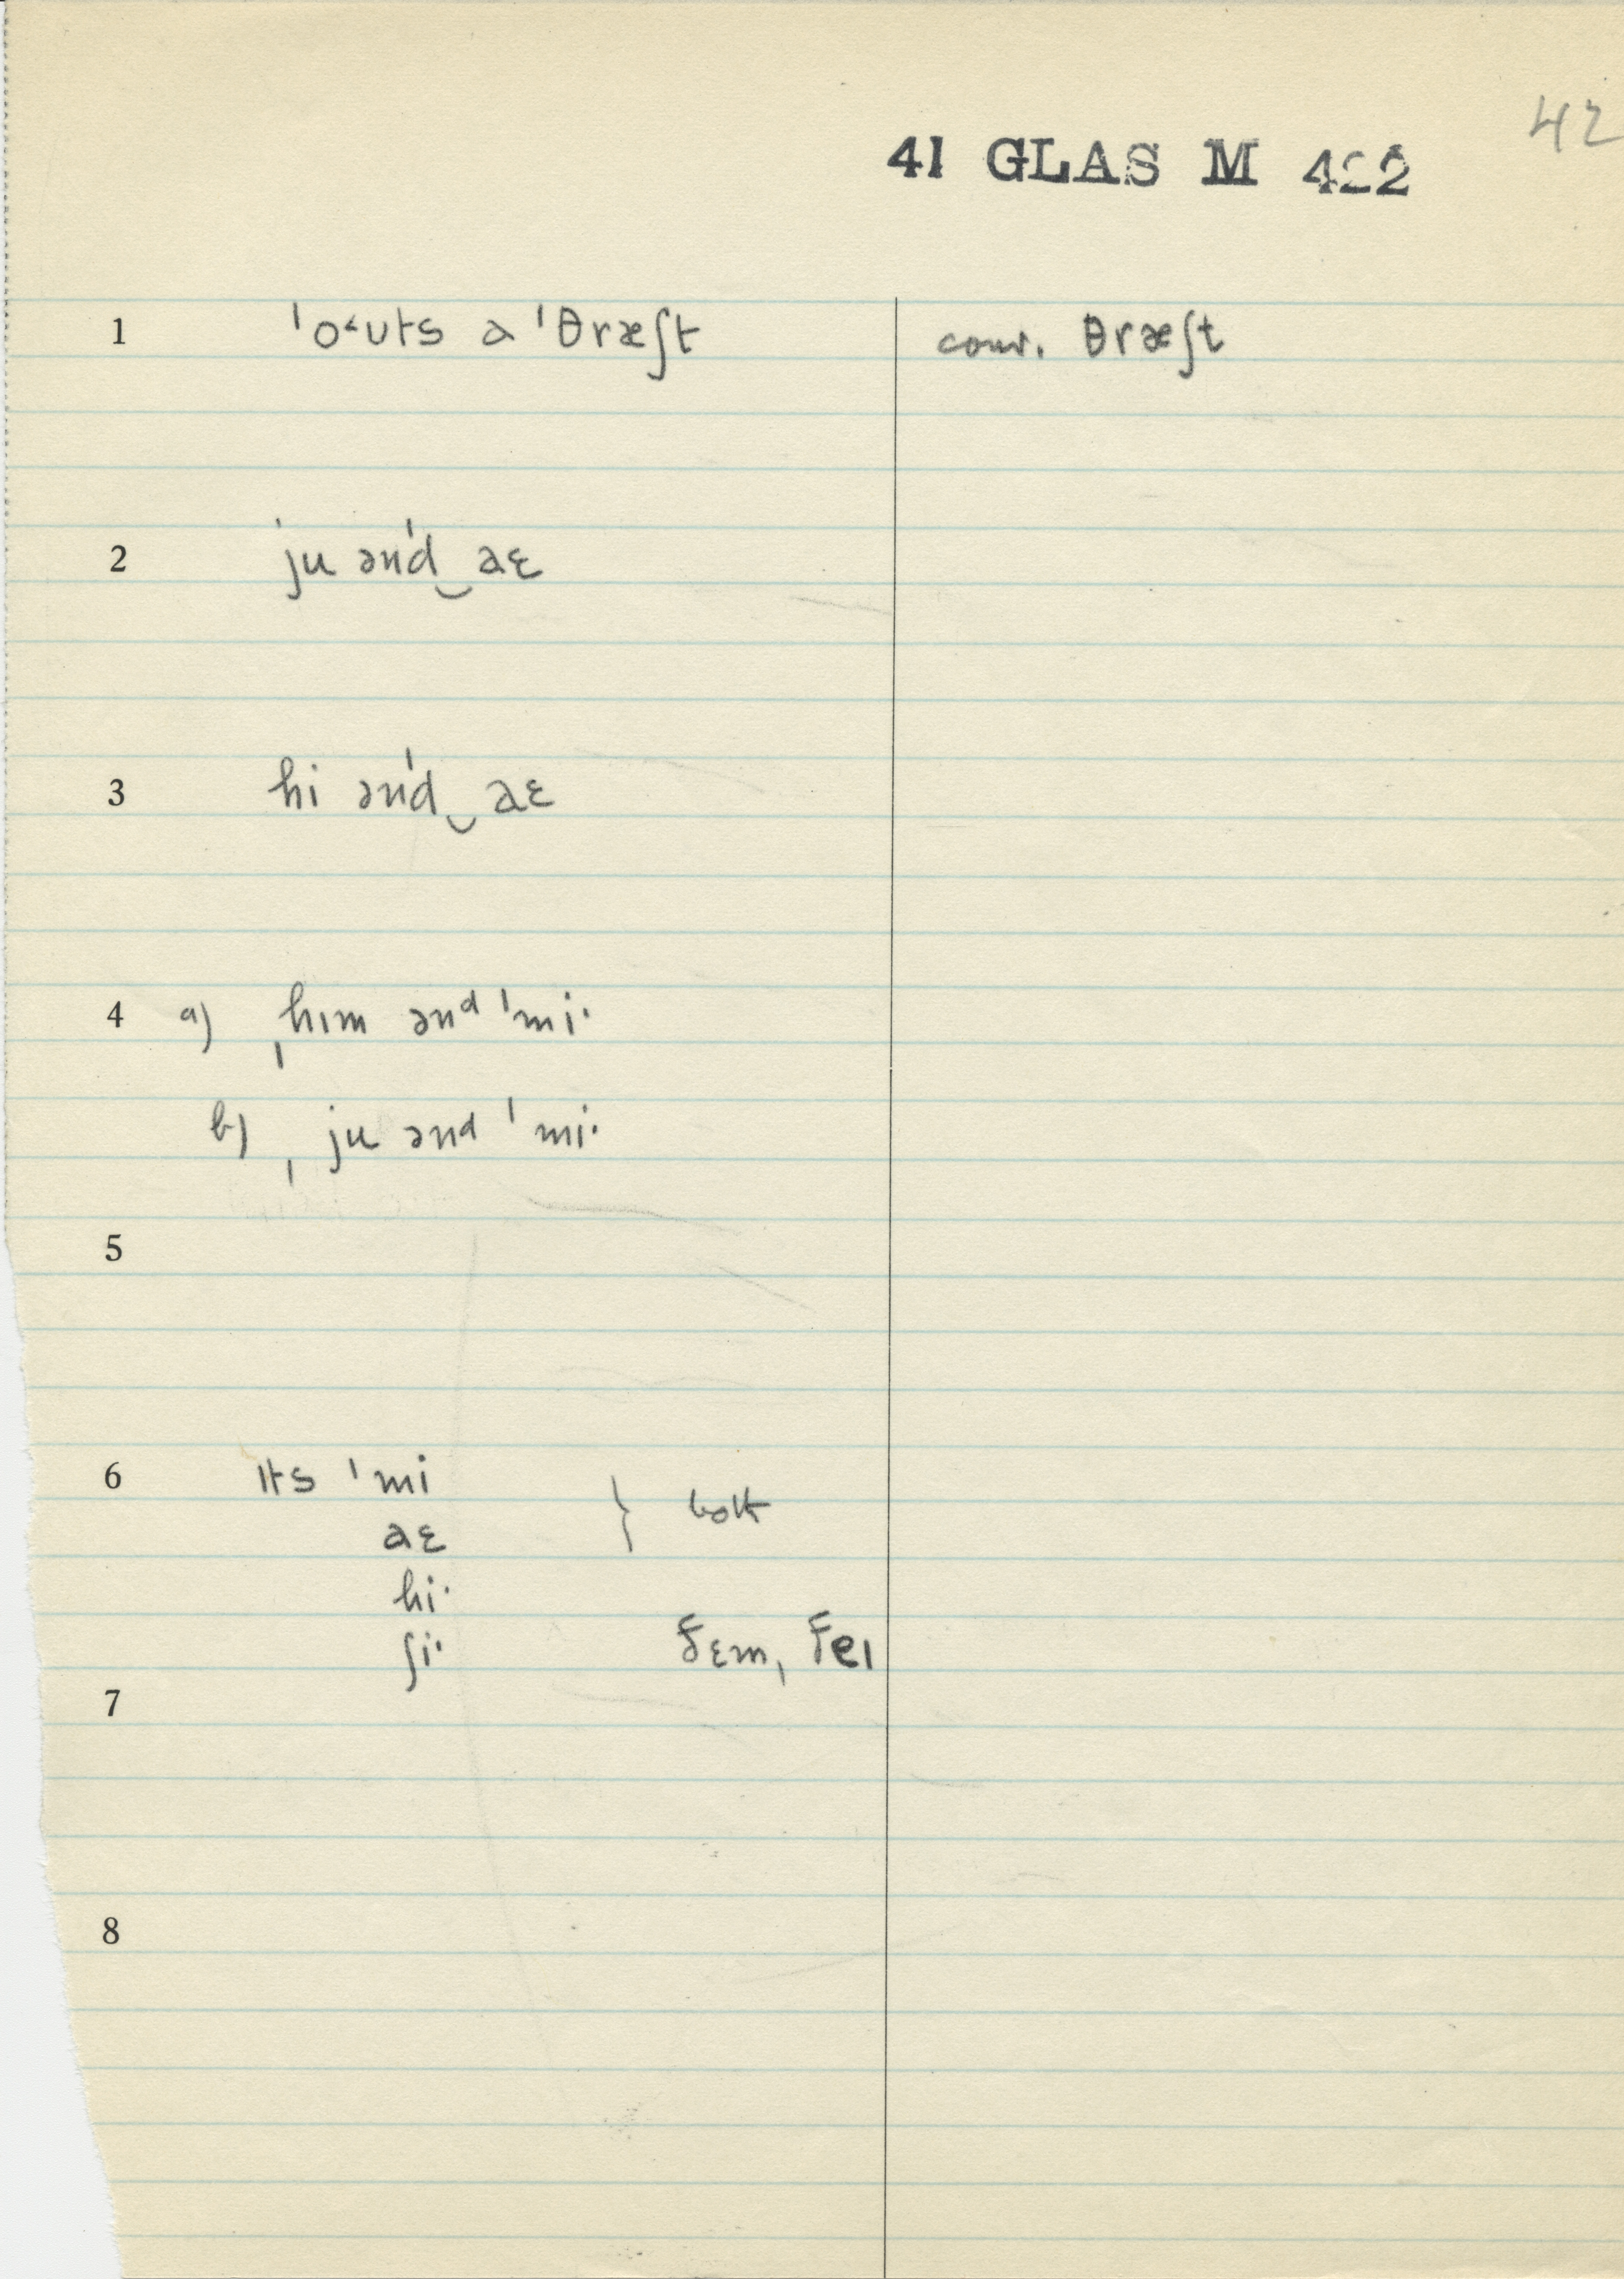 42
41 GLAS M 422
1 ˈo˂ʊts a ˈθræʃt conv. θræʃt
2 ˈju ənˈd‿aɛ
3 hi ənˈd‿aɛ
4 a) ˌhɪm ənᵈ ˈmiˑ
b) ˌju ənᵈ ˈmiˑ
5
6 ɪts ˈmi
aɛ } both
hiˑ
ʃiˑ ðɛm, ðeɪ
7
8